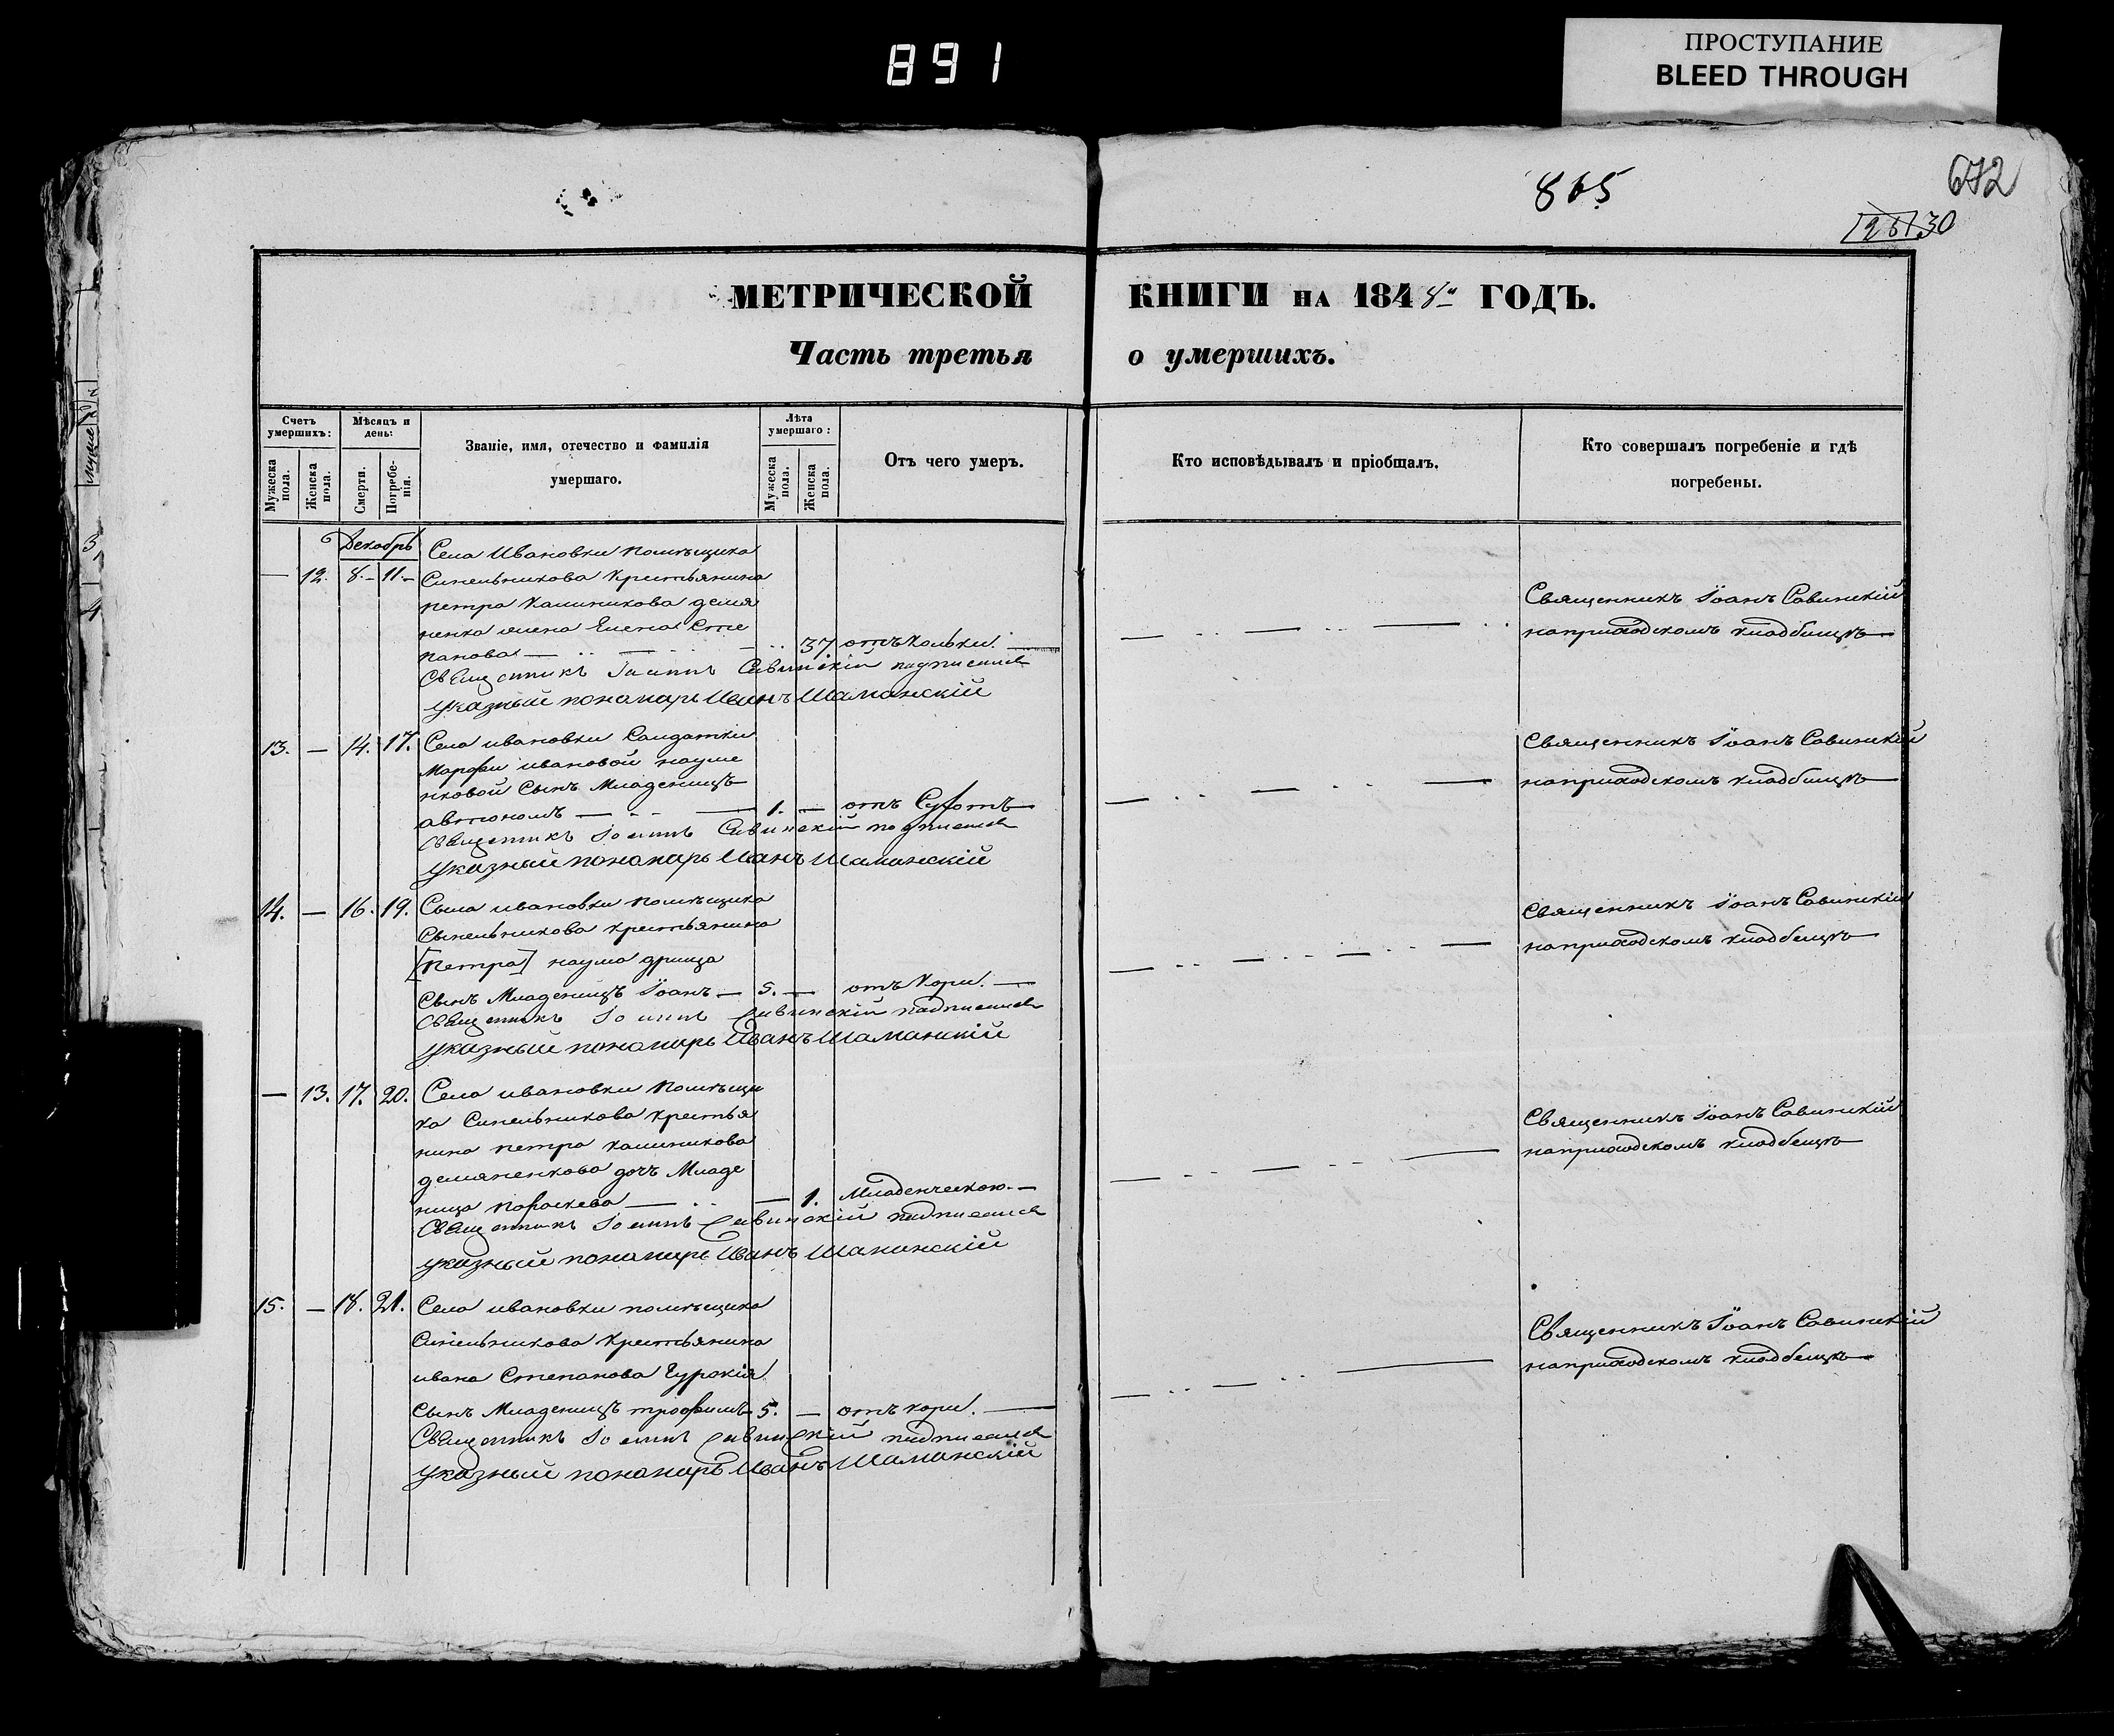 891
ПРОСТУПАНИЕ
BLEED THROUGH
865
672
30
МЕТРИЧЕСКОЙ КНИГИ НА 1848й ГОДЪ.
Часть третья о умершихъ.
Счетъ умершихъ:
Мужеска пола.
Женска пола.
Мѣсяцъ и день:
Смерти.
Погребе-нія.
Званіе, имя, отечество и фамилія
умершаго.
Лѣта умершаго:
Мужеска пола.
Женска пола.
Отъ чего умеръ.
Кто исповѣдывалъ и пріобщалъ.
Кто совершалъ погребеніе и гдѣ
погребены.
Декабрь
Села Ивановки помѣщика
— 12. 8.- 11.- Синельникова крестьянина
петра Калиникова демя
ненка жена Елена Сте
панова — 37 отъ Кольки. —
Священникъ Іоаннъ Савинскій подписался
указный понамарь Иванъ Шаманскій
Священникъ Іоанъ Савинскій
наприходскомъ кладбищѣ —
13. — 14. 17. Села ивановки Салдатки
Марфы ивановой науме
нковой Сынъ Младенецъ
автономъ — 1. — отъ Сухотъ —
Священникъ Іоаннъ Савинскій подписался
указный понамарь Иванъ Шаманскій
Священникъ Іоанъ Савинскій
наприходскомъ кладбищѣ —
14. — 16. 19. Села ивановки помѣщика
Сынельникова крестьянина
[петра] наума дрища
Сынъ Младенецъ Іоанъ — 5. — отъ Кори. —
Священникъ Іоаннъ Савинскій подписался
указный понамарь Иванъ Шаманскій
Священникъ Іоанъ Савинскій
наприходскомъ кладбещѣ —
— 13. 17. 20. Села ивановки помѣщи
ка Синельникова крестья
нина петра калиникова
демяненкова дочь Младе
ница Параскева — — 1. Младенческою. —
Священникъ Іоаннъ Савинскій подписался
указный понамарь Иванъ Шаманскій
Священникъ Іоанъ Савинскій
наприходскомъ кладбещѣ
15. — 18. 21. Села ивановки помѣщика
Синельникова крестьянина
ивана Степанова
Сынъ Младенецъ трофимъ 5. — отъ кори. —
Священникъ Іоаннъ Савинскій подписался
указный понамарь Иванъ Шаманскій
Священникъ Іоанъ Савинскій
наприходскомъ кладбещѣ —